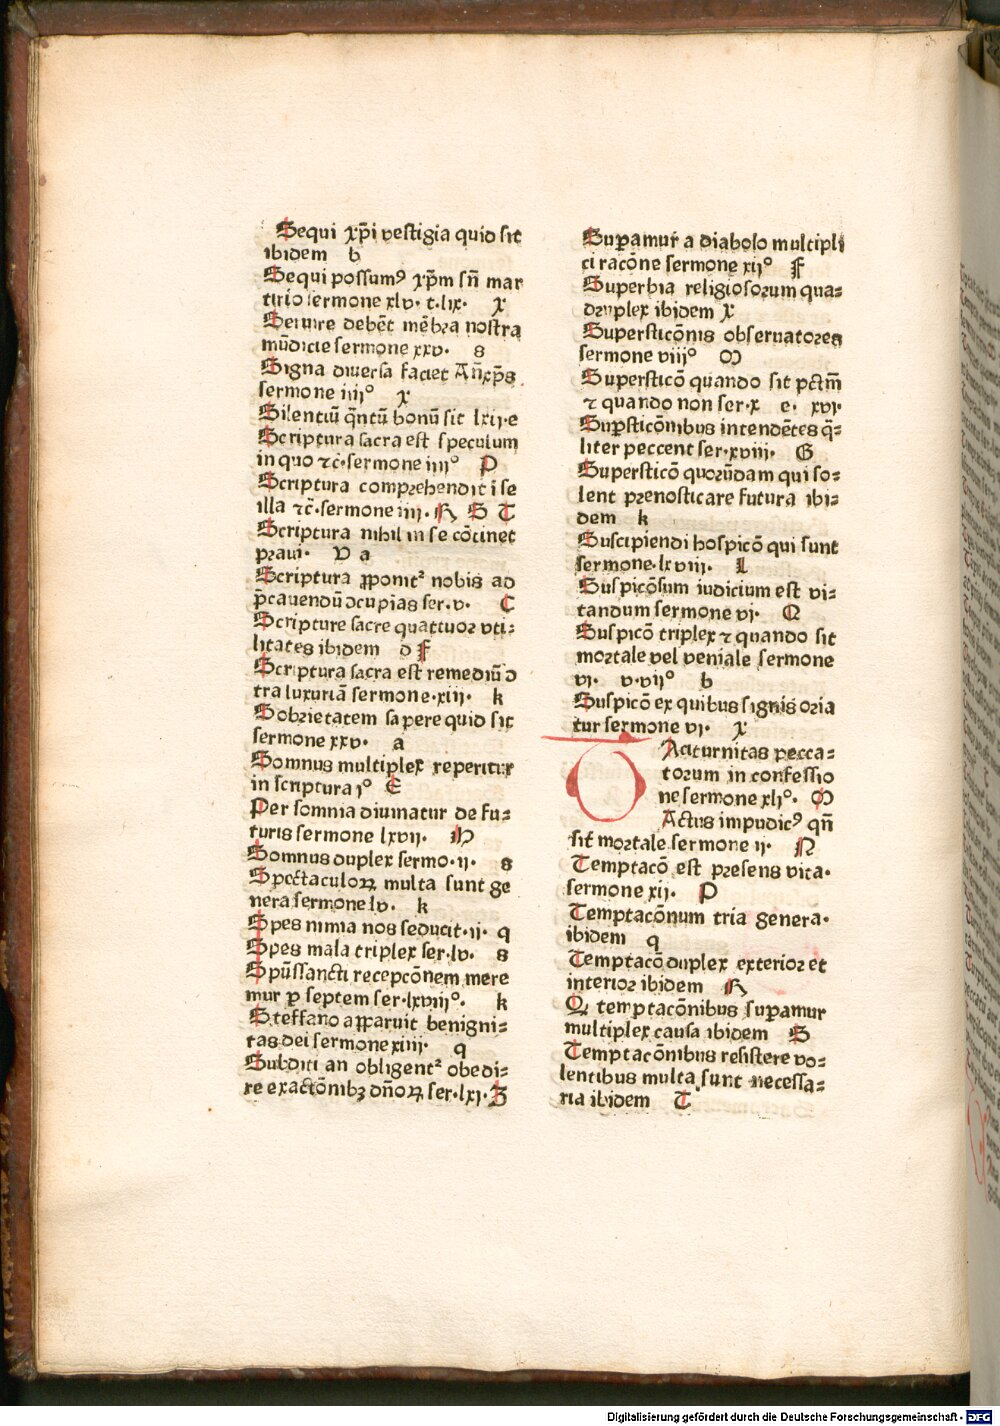 Sequi xp̄i vestigia quid sit
ibidem b
Sequi possumꝰ xp̄m sñ mar
tirio sermone xlv· t·lix· X
Seruire debēt mēbra nostra
mūdicie sermone xxv· s
Signa diuersa faciet Añxp̄s
sermone iiij° X
Silentiū q̄ntū bonū sit lxij·e
Scriptura sacra est speculum
in quo ⁊c̄·sermone iiij° P
Scriptura comprehendit ī se
illa ⁊c̄·sermone iiij· R S T
Scriptura nihil in se cōtinet
praui· V a
Scriptura ꝓponit² nobis ad
p̄cauendū ↄcupīas ser·v· C
Scripture sacre quattuor vti⸗
litates ibidem d F
Scriptura sacra est remediū ↄ
tra luxuriā sermone·xiij· k
Sobrietatem sapere quid sit
sermone xxv· a
Somnus multiplex reperitur
in scriptura j° E
Per somnia diuinatur de fu⸗
turis sermone lxvij· N
Somnus duplex sermo·ij· s
Spectaculoꝝ multa sunt ge
nera sermone lv· k
Spes nimia nos seducit·ij· q
Spes mala triplex ser·lv· s
Spūssancti recepcōnem mere
mur ꝑ septem ser·lxviij°· k
Steffano apparuit benigni⸗
tas dei sermone xiiij· q
Subditi an obligent² obedi⸗
re exactōnibꝫ dn̄oꝝ ser·lxj·Z
Suꝑamur a diabolo multipli
ci racōne sermone xij° F
Superbia religiosorum qua⸗
druplex ibidem X
Supersticōnis obseruatores
sermone viij° M
Supersticō quando sit pctm̄
⁊ quando non ser·x e· xvj·
Suꝑsticōnibus intendētes q̄⸗
liter peccent ser·xviij· G
Supersticō quorūdam qui so⸗
lent prenosticare futura ibi⸗
dem k
Suscipiendi hospicō qui sunt
sermone·lxviij· L
Suspicōsum iudicium est vi⸗
tandum sermone vj· Q
Suspicō triplex ⁊ quando sit
mortale vel veniale sermone
vj· v·vij° b
Suspicō ex quibus signis oria
tur sermone vj· X
Taciturnitas pecca⸗
torum in confessio
ne sermone xlj°· M
Tactus impudicꝰ qn̄
sit mortale sermone ij· N
Temptacō est presens vita·
sermone xij· P
Temptacōnum tria genera·
ibidem q
Temptacō duplex exterior et
interior ibidem R
Q temptacōnibus suꝑamur
multiplex causa ibidem S
Temptacōnibus resistere vo⸗
lentibus multa sunt necessa⸗
ria ibidem T
Digitalisierung gefördert durch die Deutsche Forschungsgemeinschaft - DFG